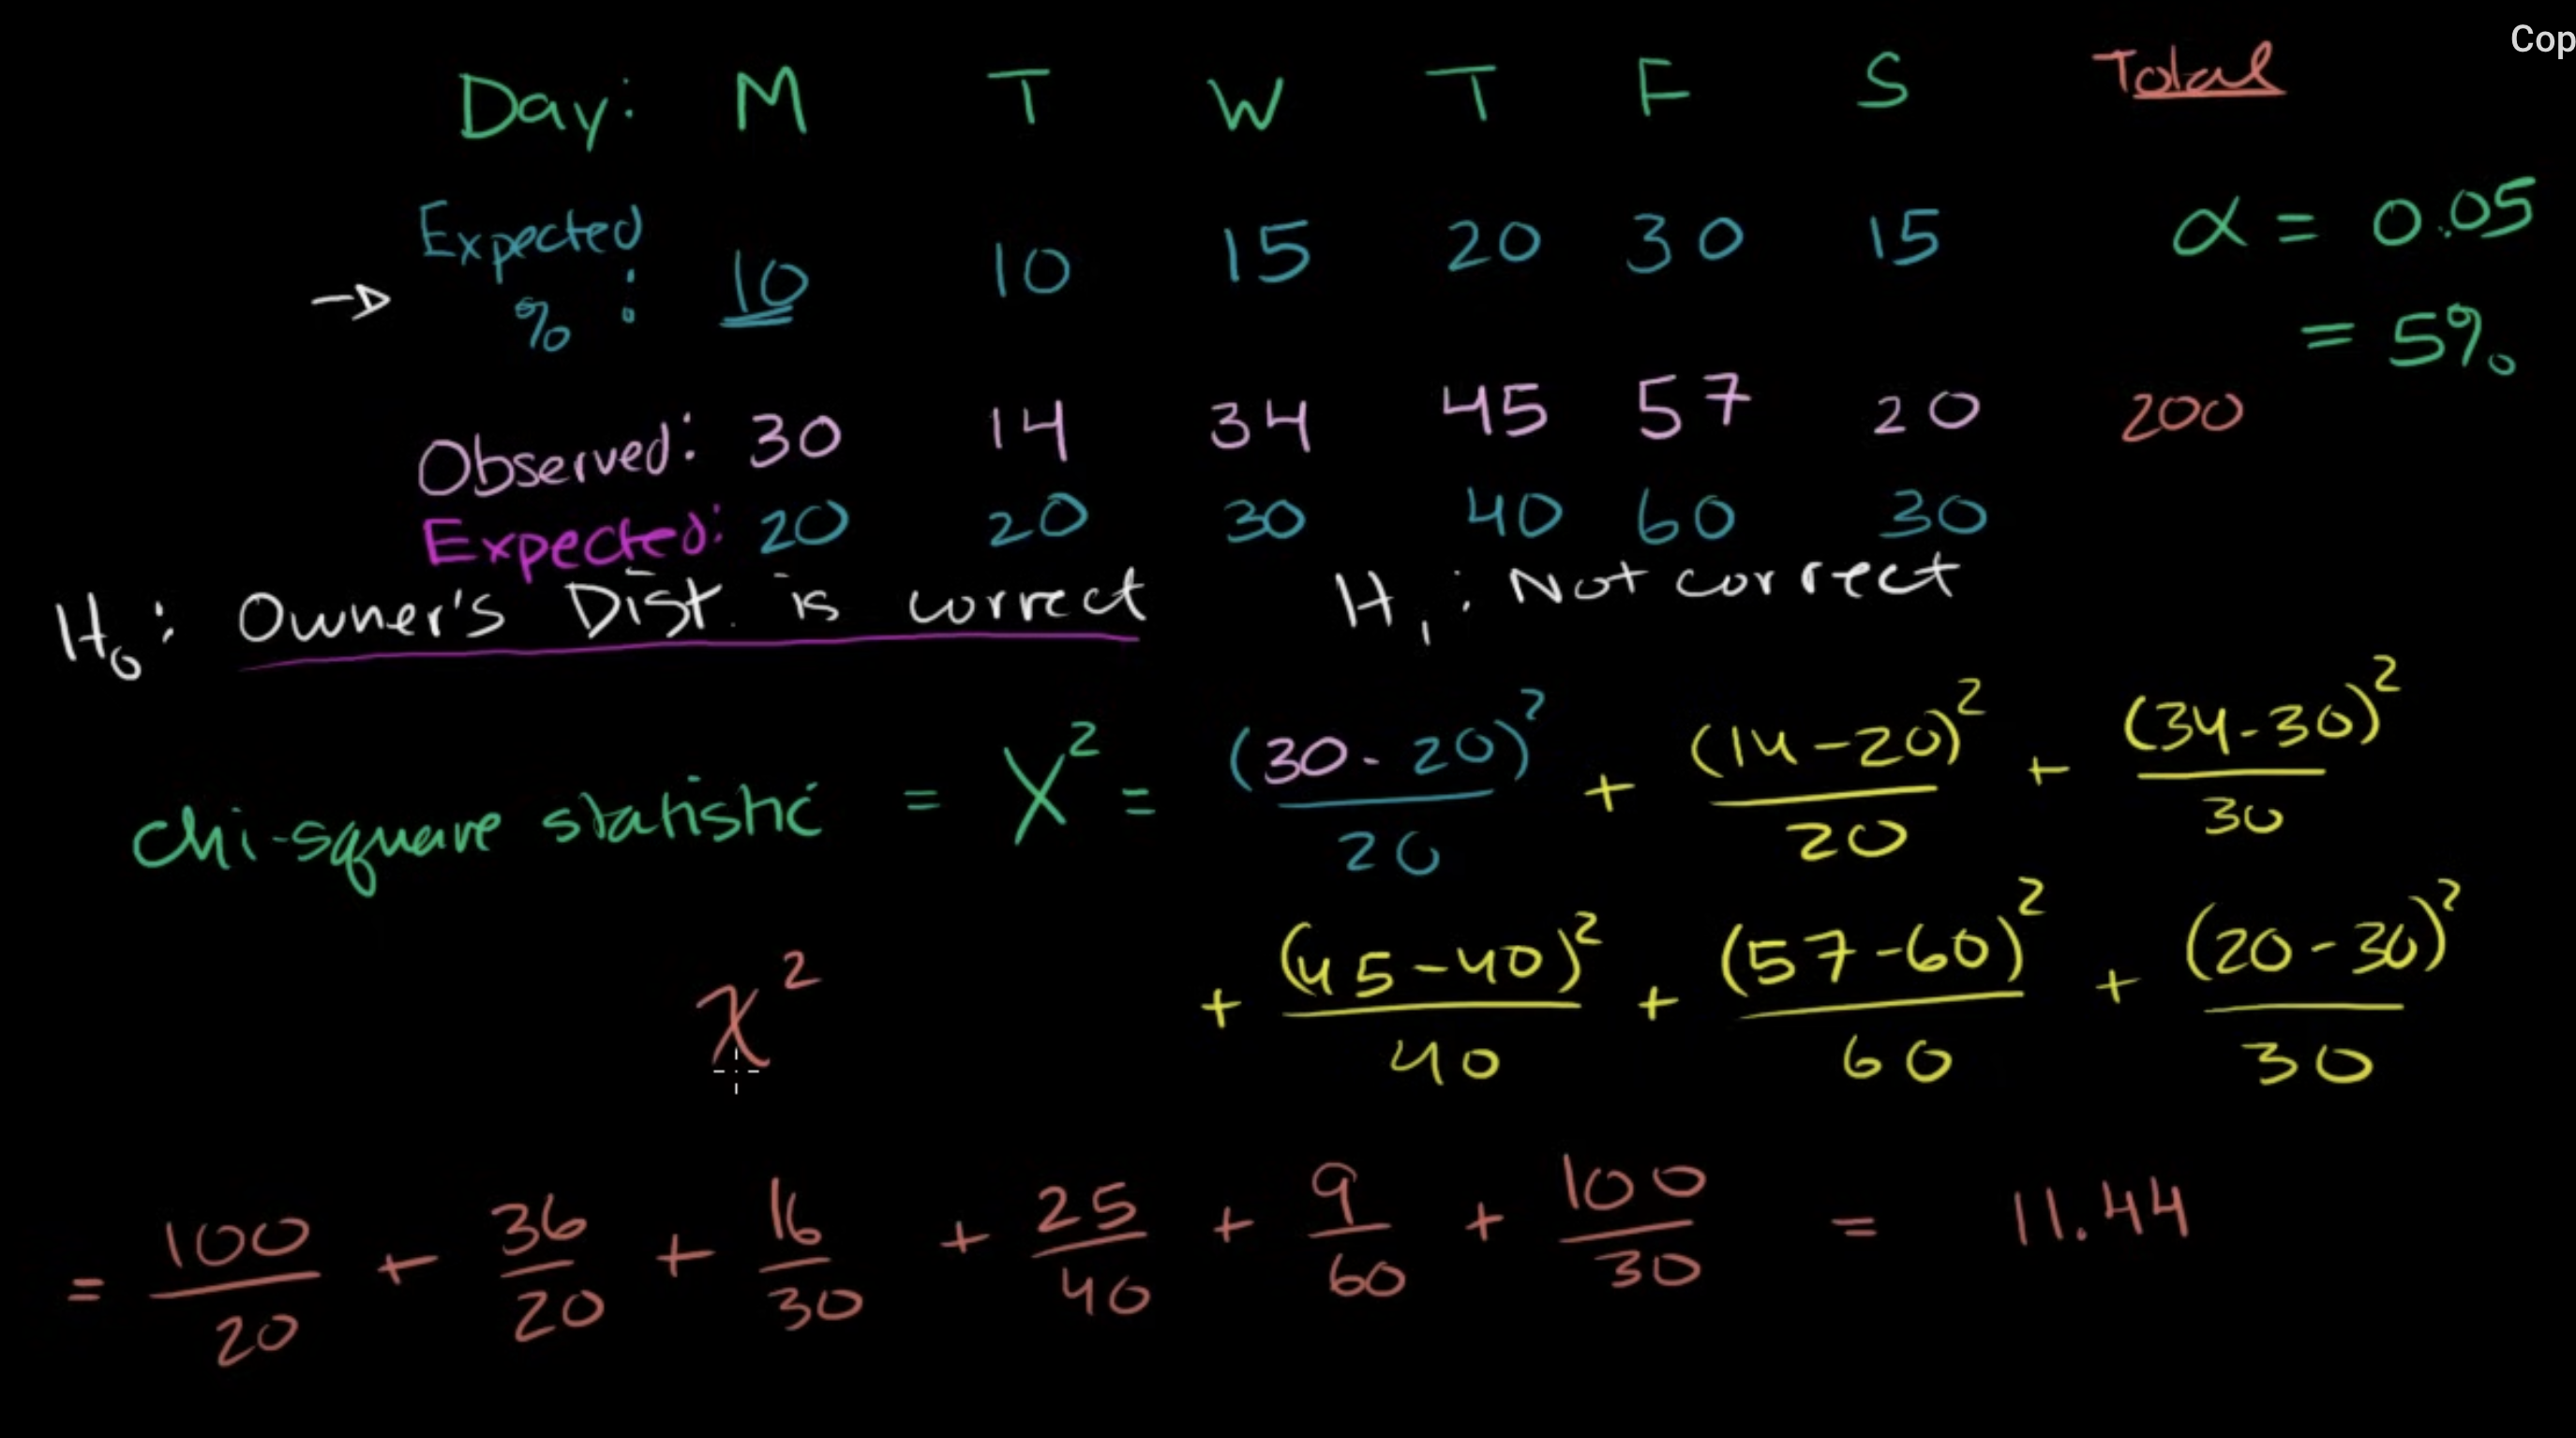 Cop
Day: M T W T F S Total
Expected % : 10 10 15 20 30 15
α = 0.05
= 5%
Observed: 30 14 34 45 57 20 200
Expected: 20 20 30 40 60 30
H₀: Owner's Dist. is correct H₁: Not correct
chi-square statistic = X² = (30-20)²/20 + (14-20)²/20 + (34-30)²/30
+ (45-40)²/40 + (57-60)²/60 + (20-30)²/30
χ²
= 100/20 + 36/20 + 16/30 + 25/40 + 9/60 + 100/30 = 11.44